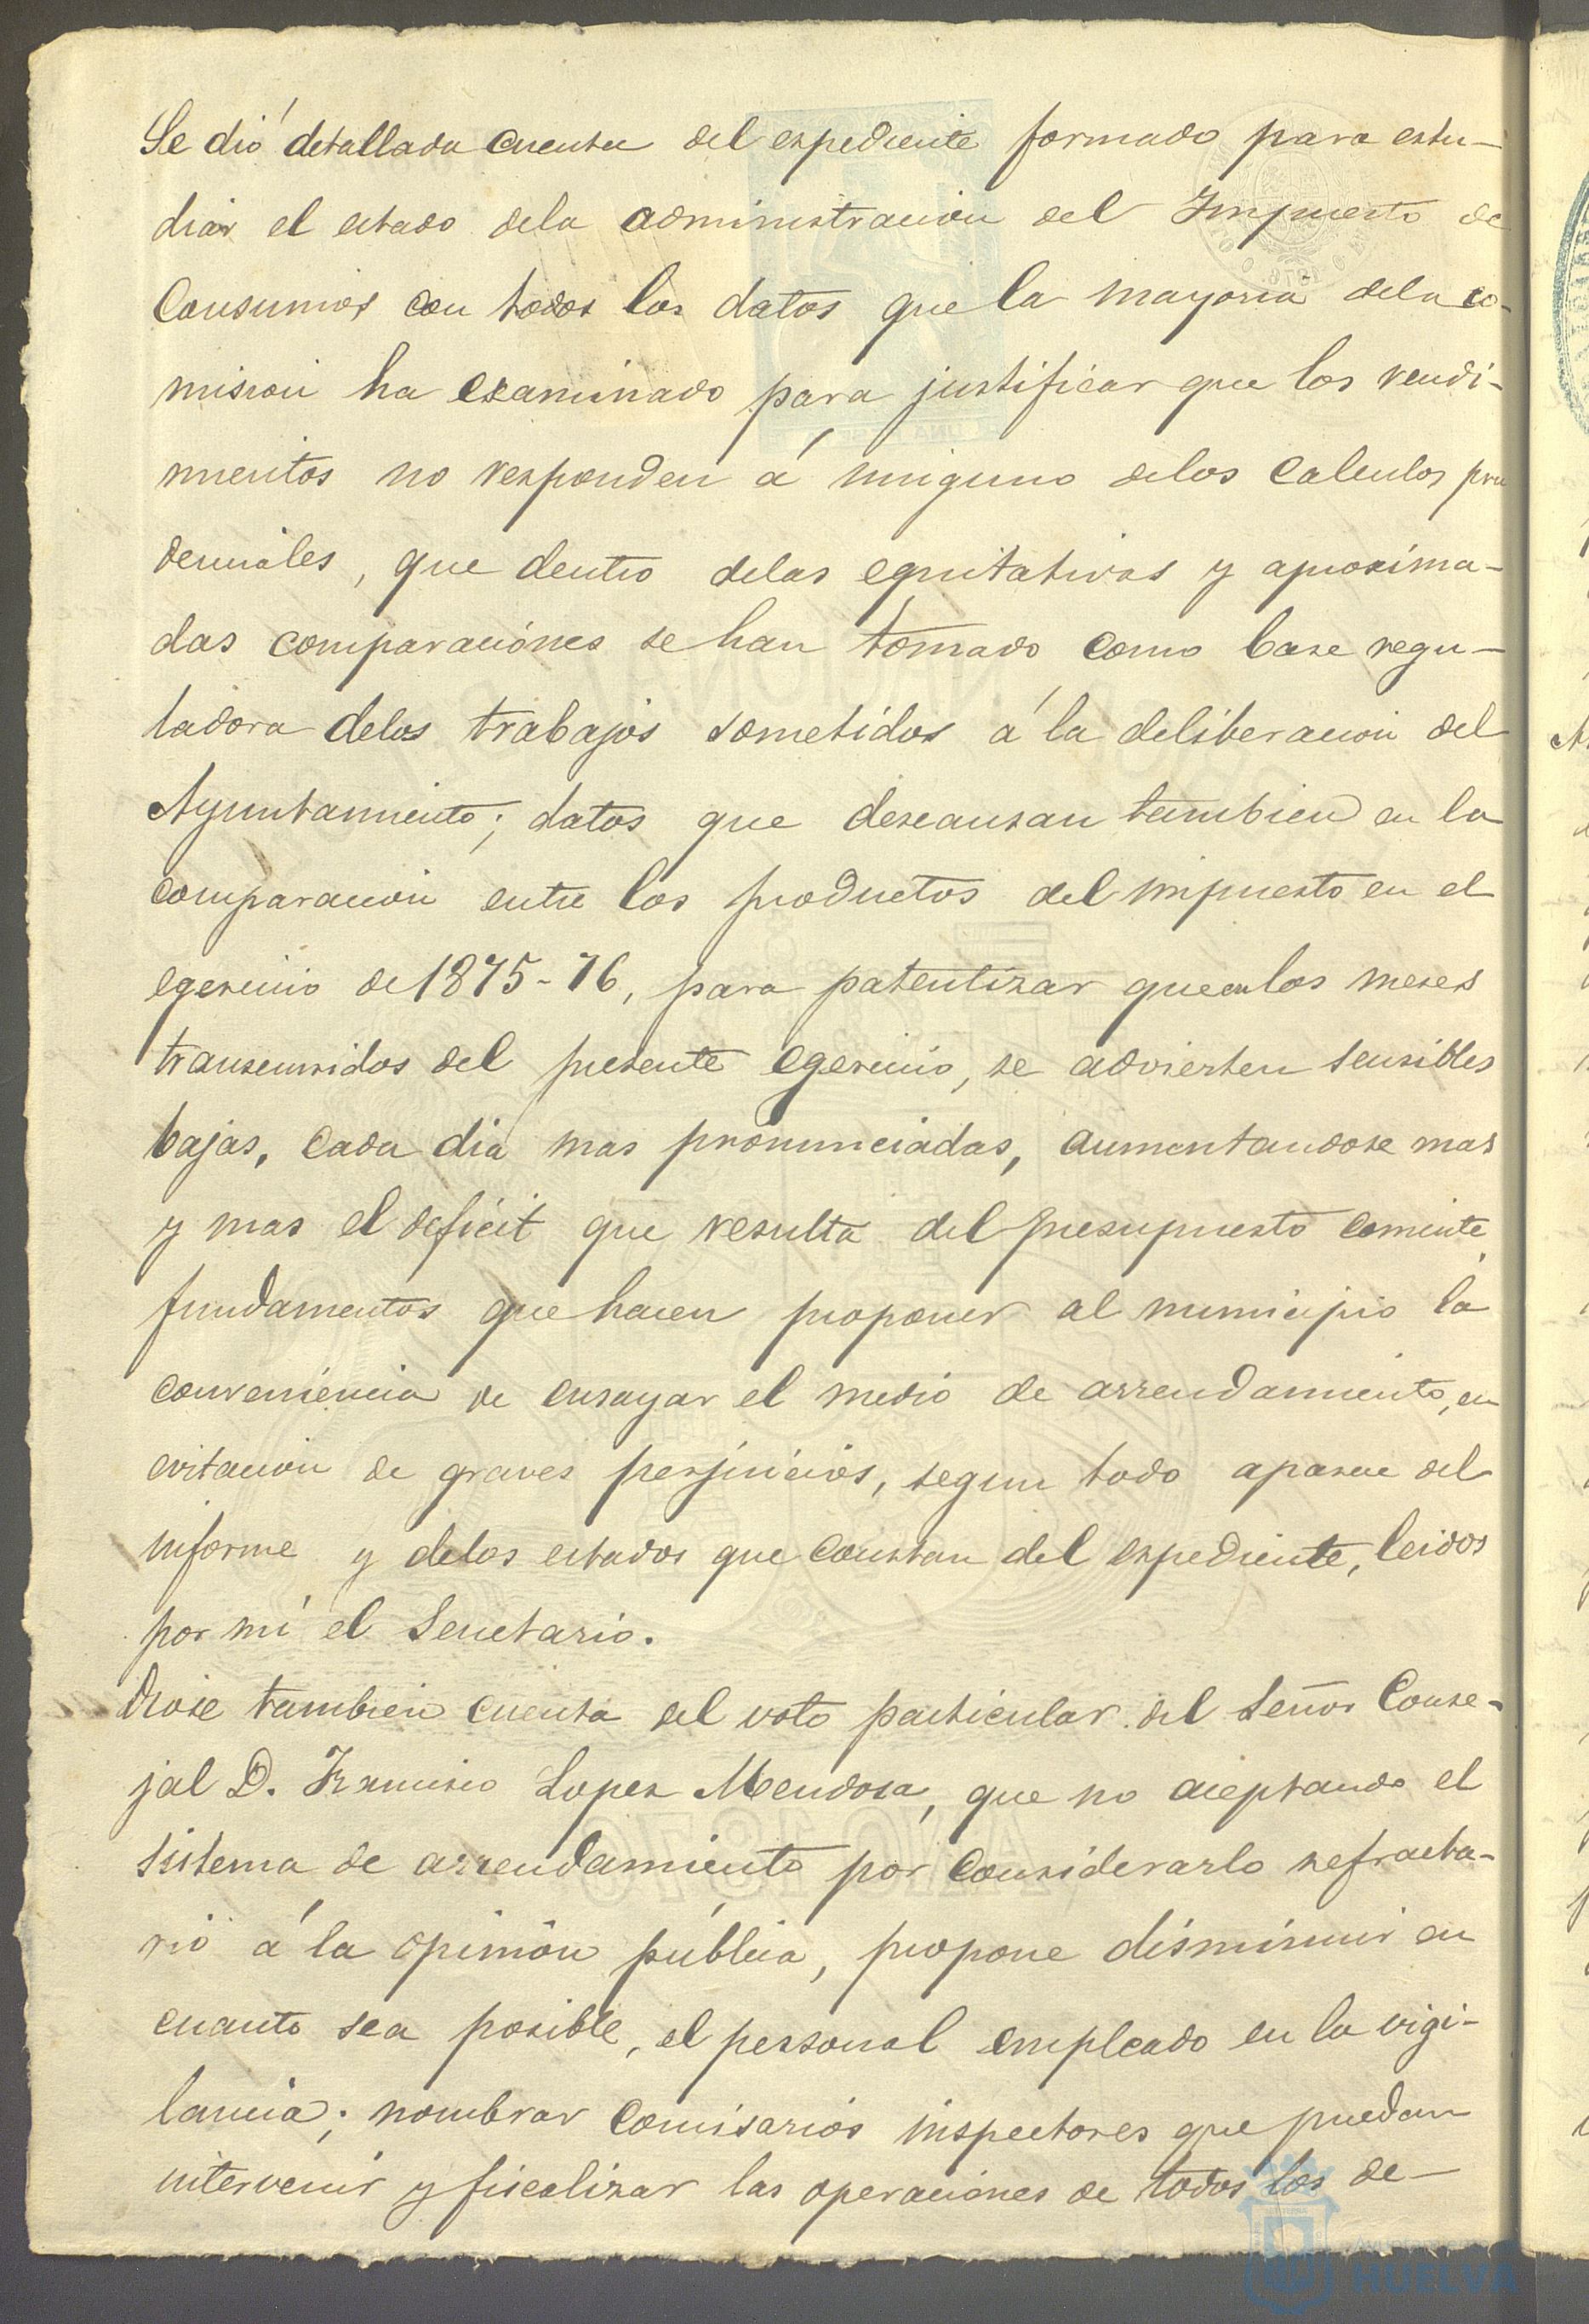 Se dió detallada cuenta del espediente formado para estu-
diar el estado dela administracion del Impuesto de
Consumos con todos los datos que la mayoria dela co-
mision ha examinado para justificar que los rendi-
mientos no responden á ninguno delos calculos pru
denciales, que dentro delas equitativas y aproxima-
das comparaciónes se han tomado como base regu-
ladora delos trabajos sometidos á la deliberacion del
Ayuntamiento; datos que descansan tambien en la
comparacion entre los productos del impuesto en el
egercicio de 1875-76, para patentizar que en los meses
transcurridos del presente egercicio, se advierten sensibles
bajas, cada dia mas pronunciadas, aumentandose mas
y mas el deficit que resulta del presupuesto corriente
fundamentos que hacen proponer al municipio la
conveniencia de ensayar el medio de arrendamiento, en
evitacion de graves perjuicios, segun todo aparece del
informe y delos estados que constan del espediente, leidos
por mi el Secretario.
Diose tambien cuenta del voto particular del Señor Conse-
jal D. Francisco Lopez Mendoza, que no aceptando el
sistema de arrendamiento por considerarlo refracta-
rio á la opinión pública, propone disminuir en
cuanto sea posible, el personal empleado en la vigi-
lancia; nombrar Comisarios inspectores que puedan
intervenir y fiscalizar las operaciones de todos los de-
AÑO 1876
HUELVA